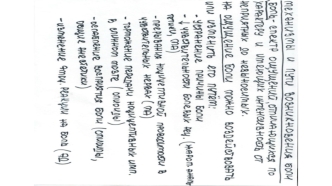 механизмы и пути возникновения боли
Боль - спектр ощущений отличающихся по
характеру и имеющих интенсивность от
неприятных до невыносимых.
на ощущение боли можно воздействовать
или изменить его путем:
- устранение причины боли
- ↓ чувствительности болевых рец.
- прерывания ноцицептивной проводимости в
чувствительных нервах
- торможение передачи ноцицептивных имп.
в спинном мозге (опиоиды)
- подавление восприятия боли (опиоиды
общие анестетики)
- изменение типа реакции на боль